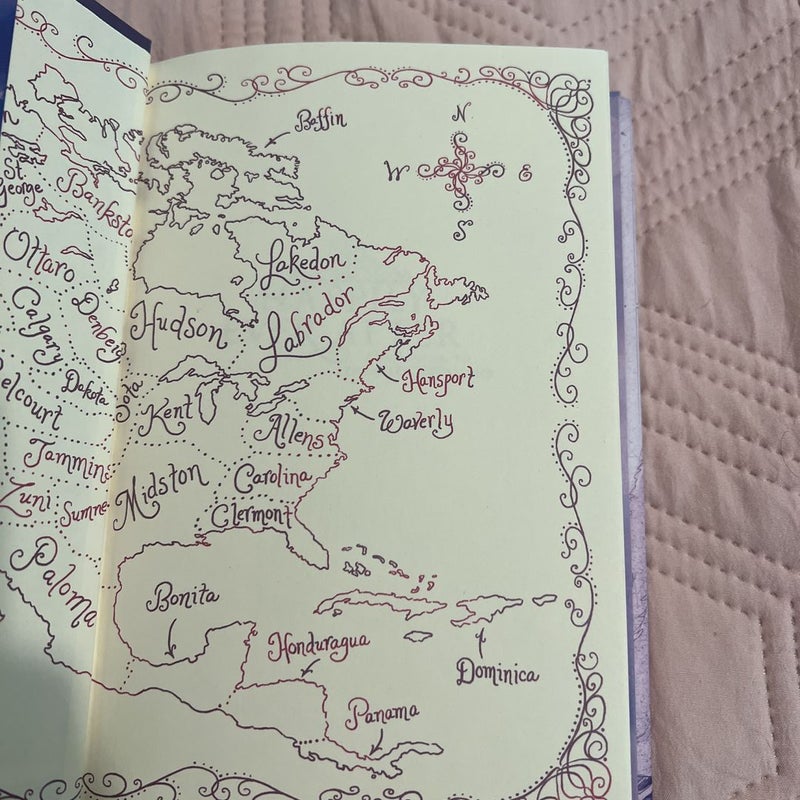 Baffin
N
W
E
S
St
George
Banksto
Lakedon
Ottaro
Labrador
Denberg
Hudson
Calgary
Hansport
Dakota
Waverly
elcourt
Sota
Kent
Allens
Tammins
Carolina
Midston
Zuni
Sumne
Clermont
Paloma
Bonita
Honduragua
Dominica
Panama